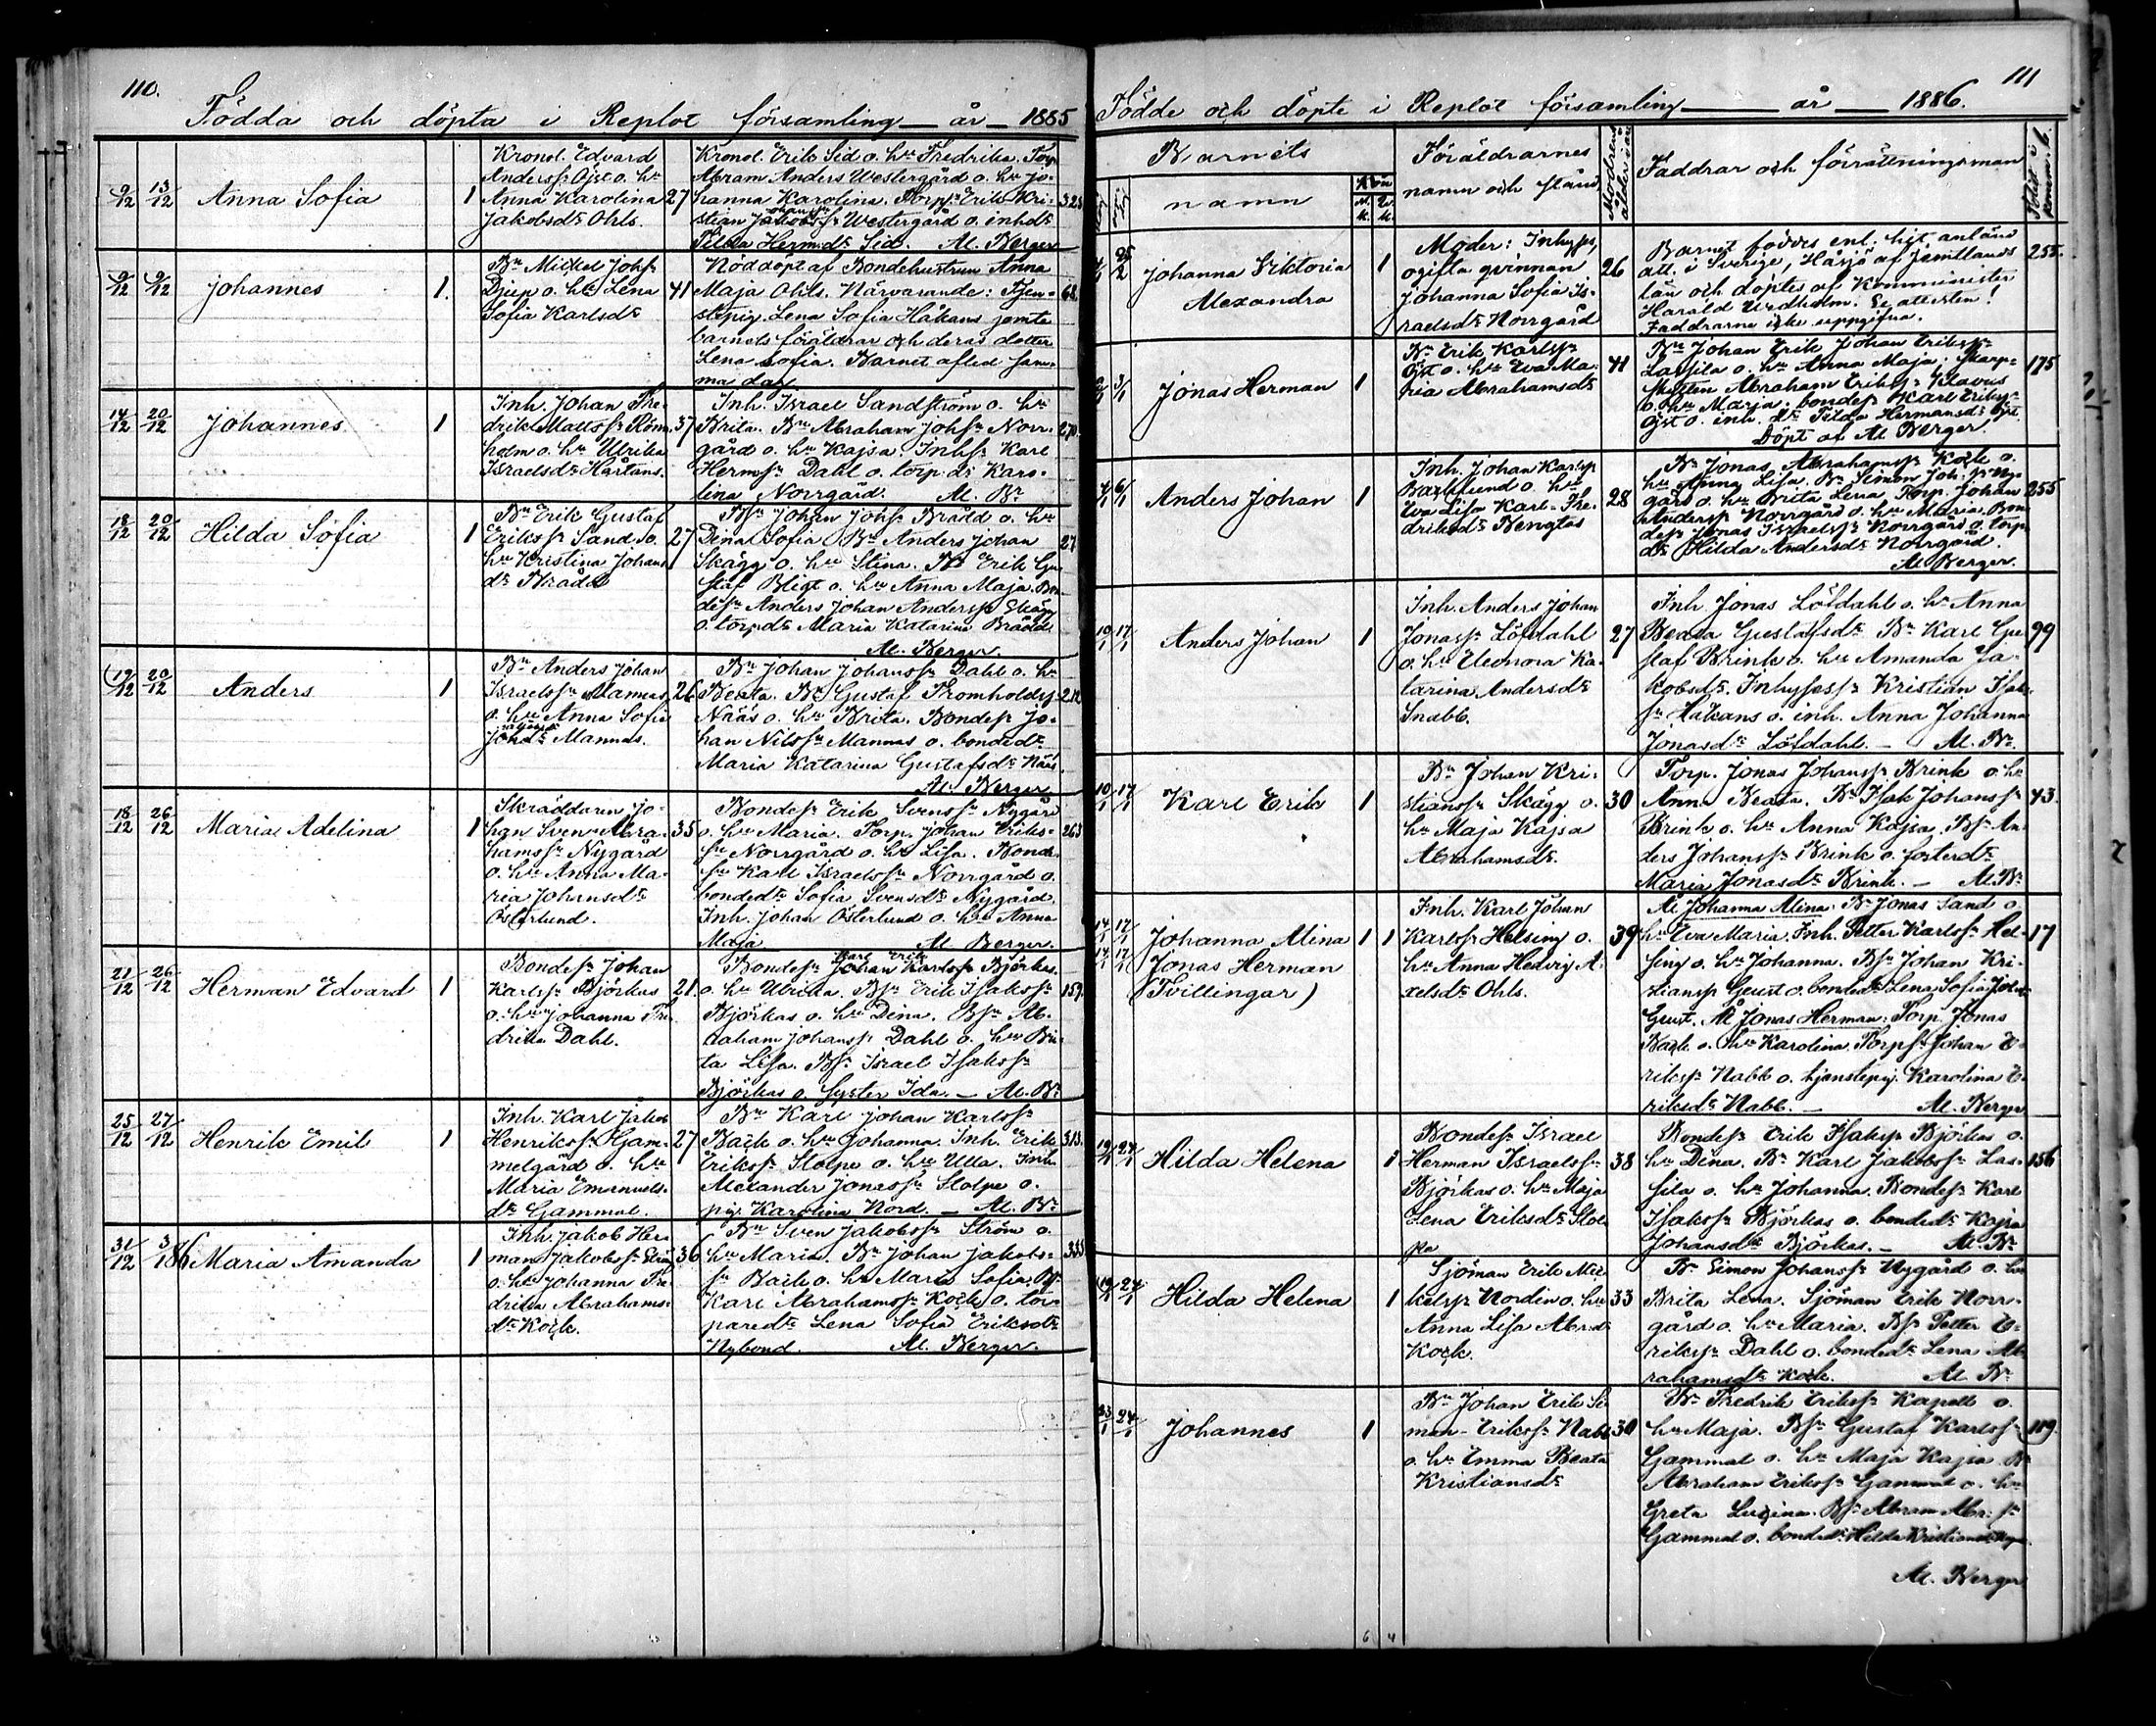 110.
Födda och döpta i Replot församling år 1885
9/12 13/12 Anna Sofia 1 27 328
Kronot. Edvard
Anderss: Öjst o. hu
Anna Karolina
Jakobsdr Ohls.
Kronot. Erik Sid o. hu Fredrika. Torp
Abram Anders Westergård o. hu Jo-
hanna Karolina. Torps: Erik Kri-
stian Johanss: Westergård o. inhdr
Tilda Hermdr Sid. Al. Berger
9/12 9/12 Johannes 1. 41 68
Bn Mickel Johss
Djup o. hu Lena
Sofia Karlsdr
Nöddöpt af Bondehustrun Anna
Maja Ohls. Närvarande: Tjen-
stepig. Lena Sofia Håkans jemte
barnets föräldrar och deras dotter
Lena Sofia. Barnet afled sam-
ma dag
14/12 20/12 Johannes 1 37 270
Inh. Johan Fre-
drik Mattss: Rönn-
holm o. hu Ulrika
Israelsdr Hårtans.
Inh. Israel Sandström o. hu
Brita. Bn Abraham Johss Norr-
gård o. hu Kajsa. Inhs: Karl
Hermss: Dahl o. torp. dr Karo-
lina Norrgård. Al. Br
18/12 20/12 Hilda Sofia 1 27 27
Bn Erik Gustaf
Erikss: Sand o.
hu Kristina Johans
dr Brådd
Bss Johan Johss Brådd o. hu
Dina Sofia. Bn Anders Johan
Skägg o. hu Stina. Bn Erik Gu-
staf Bligt o. hu Anna Maja. Bon-
des: Anders Johan Anderss: Skägg
o. torpdr Maria Katarina Brådd
Al. Berger.
19/12 20/12 Anders 1 26 212
Bn Anders Johan
Israelss: Mannas
o. hu Anna Sofia
Johdr Mannas.
Bn Johan Johanss: Dahl o. hu
Beata. Bn Gustaf Fromholdss
Nääs o. hu Brita. Bondes: Jo-
han Nilss: Mannas o. bondedr
Maria Katarina Gustafsdr Näs.
Al. Berger
18/12 26/12 Maria Adelina 1 35 263
Skräddaren Jo-
han Sven Abra-
hamss: Nygård
o. hu Anna Ma-
ria Johansdr
Österlund.
Bondes: Erik Svenss: Nygård
o. hu Maria. Torp. Johan Eriks-
sn Norrgård o. hu Lisa. Bonde-
sn Karl Israelss: Norrgård o.
bondedr Sofia Svensdr Nygård.
Inh. Johan Österlund o. hu Anna
Maja Al. Berger.
21/12 26/12 Herman Edvard 1 21. 159.
Bondes: Johan
Karlss: Björkas
o. hu Johanna Fre-
drika Dahl.
Karl Erik
Bondes: Johan Karlss: Björkas
o. hu Ulrika. Bss Erik Isakss:
Björkas o. hu Dina. Bss Ab-
raham Johanss: Dahl o. hu Bri-
ta Lisa. Bss Israel Isakss:
Björkas o. syster Ida. – Al. Br
25/12 27/12 Henrik Emil 1 27 313.
Inh. Karl Jakob
Henrikss: Gam-
melgård o. hu
Maria Emanuels-
dr Gammal.
Bn Karl Johan Karlss:
Back o. hu Johanna. Inh. Erik
Erikss: Stolpe o. hu Ulla. Inh.
Alexander Jonass: Stolpe o.
pig. Karolina Nord. – Al. Br
31/12 3/1 86 Maria Amanda 1 36 333
Inh. Jakob Her-
man Jakobss: Ström
o. hu Johanna Fre-
drika Abrahams-
dr Kock.
Bn Sven Jakobss: Ström o.
hu Maria. Bn Johan Jakobs-
sn Back o. hu Maria Sofia. Bss
Karl Abrahamss: Kock o. tor-
paredr Lena Sofia Eriksdr
Nybond. Al. Berger.
111
Födde och döpte i Replot församling år 1886.
Barnets
namn
Kön
M.k. Q.k.
Föräldrarnes
namn och stånd
Modrens ålder i år
Faddrar och förrättningsman
Folio i komm. b.
4/1 25/2 Johanna Viktoria 1 26 255.
Alexandra
Moder: Inhyses,
ogifta qvinnan
Johanna Sofia Is-
raelsdr Norrgård
Barnet föddes enl. hit anländ
att. i Sverige, Håsjö af Jemtlands
län och döptes af Komminister
Harald Wedholm. Se attesten!
Faddrarne icke uppgifna.
2/1 3/1 Jonas Herman 1 41 175
Bn Erik Karlss:
Öjst o. hu Eva Ma-
ria Abrahamsdr
Bn Johan Erik Johan Erikss:
Lassila o. hu Anna Maja. Skarp-
skytten Abraham Erikss: Klavus
o. hu Maria. bondes: Karl Erikss:
Öjst o. inh. dr Tilda Hermansdr Öjst
Döpt af Al Berger.
4/1 6/1 Anders Johan 1 28 255
Inh. Johan Karlss:
Backlund o. hu
Eva Lisa Karl-Fre-
driksdr Bengtas
Bn Jonas Abrahamss: Kock o.
hu Anna Lisa. Bn Simon Joh: sn Ny-
gård o. hu Brita Lena. Torp. Johan
Anderss: Norrgård o. hu Maria. Bon-
des: Jonas Israelss: Norrgård o. torp.
dr Hilda Andersdr Norrgård.
Al Berger.
10/1 17/1 Anders Johan 1 27 99
Inh. Anders Johan
Jonass: Löfdahl
o. hu Eleonora Ka-
tarina Andersdr
Snabb.
Inh. Jonas Löfdahl o. hu Anna
Beata Gustafsdr. Bn Karl Gu-
staf Brink o. hu Amanda Ja-
kobsdr. Inhysess: Kristian Isak-
sn Håkans o. inh. Anna Johanna
Jonasdr Löfdahl. – Al. Br.
10/1 17/1 Karl Erik 1 30 43.
Bn Johan Kri-
stianss: Skägg o.
hu Maja Kajsa
Abrahamsdr.
Torp. Jonas Johanss: Brink o. hu
Anna Beata. Bn Isak Johanss:
Brink o. hu Anna Kajsa. Bss An-
ders Johanss: Brink o. fosterdr
Maria Jonasdr Brink. – Al. Br
14/1 17/1 Johanna Alina 1 1 39 17
14/1 17/1 Jonas Herman
(Tvillingar)
Inh. Karl Johan
Karlss: Helsing o.
hu Anna Hedvig A-
xelsdr Ohls.
Åt Johanna Alina: Bn Jonas Sand o.
hu Eva Maria. Inh. Petter Karlss: Hel-
sing o. hu Johanna. Bss Johan Kri-
stianss: Geust o. bondedr Lena Sofia Johsdr
Geust. Åt Jonas Herman: Torp. Jonas
Back o. hu Karolina. Torps: Johan E-
rikss: Nabb o. tjenstepig. Karolina E-
riksdr Nabb. – Al. Berger
19/1 24/1 Hilda Helena 1 38 156
Bondes: Israel
Herman Israelss:
Björkas o. hu Maja
Lena Eriksdr Stol-
pe
Bondes: Erik Isakss: Björkas o.
hu Dina. Bn Karl Jakobss: Las-
sila o. hu Johanna. Bondes: Karl
Isakss: Björkas o. bondedr Kajsa
Johansdr Björkas. – Al. Br
19/1 24/1 Hilda Helena 1 33
Sjöman Erik Mic-
kelss: Nordin o. hu
Anna Lisa Abr:dr
Kock.
Bn Simon Johanss: Nygård o. hu
Brita Lena. Sjöman Erik Norr-
gård o. hu Maria. Bss Petter E-
rikss: Dahl o. bondedr Lena Ab-
rahamsdr Kock. Al Br
23/1 24/1 Johannes 1 30 119.
Bn Johan Erik Si-
mon-Erikss: Nabb
o. hu Emma Beata
Kristiansdr
Bn Fredrik Erikss: Kapell o.
hu Maja. Bss Gustaf Karlss:
Gammal o. hu Maja Kajsa. Bn
Abraham Erikss: Gammal o. hu
Greta Lovina. Bss Abram Abr: sn
Gammal o. bondedr Hilda Kristiansdr
Al. Berger
6 4